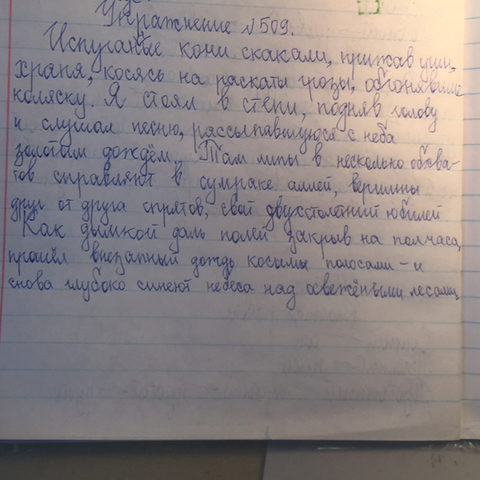 Упражнение №509.
Испуганные кони скакали, прижав уши,
храпя, косясь на раскаты грозы, обгонявшие
коляску. Я стоял в степи, подняв голову
и слушал песню, рассыпавшуюся с неба
золотым дождём. Там липы в несколько обхва-
тов справляют в сумраке аллей, вершины
друг от друга спрятов, свой двухстолетний юбилей
Как дымкой даль полей закрыв на полчаса,
прошёл внезапный дождь косыми полосами - и
снова глубоко синеют небеса над освежёнными лесами